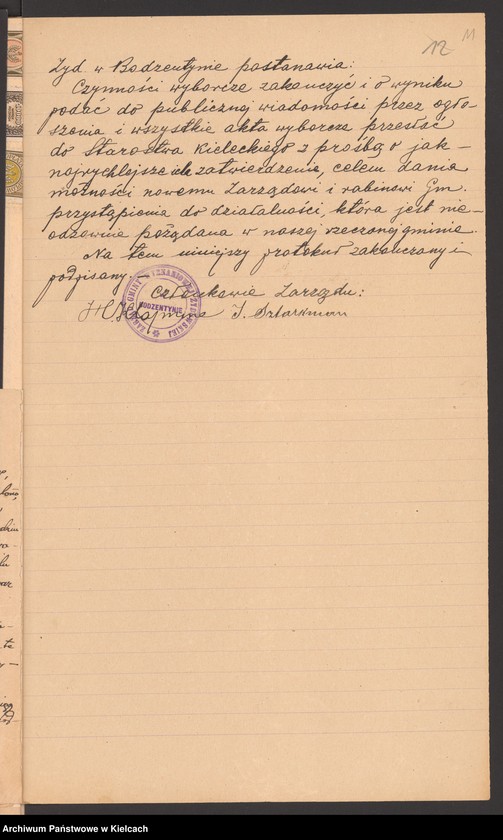 12 11
Żyd. w Bodzentynie postanawia:
Czynności wyborcze zakończyć i o wyniku
podać do publicznej wiadomości przez ogło-
szenia i wszystkie akta wyborcze przesłać
do Starostwa Kieleckiego z prośbą o jak-
najrychlejsze ich zatwierdzenie, celem dania
możności nowemu Zarządowi i rabinowi Gm.
przystąpienia do działalności, która jest nie-
odzownie pożądana w naszej rzeczonej gminie.
Na tem niniejszy protokuł zakończony i
podpisany.
Członkowie Zarządu:
BODZENTYNIE
J. Sztarkman
Archiwum Państwowe w Kielcach